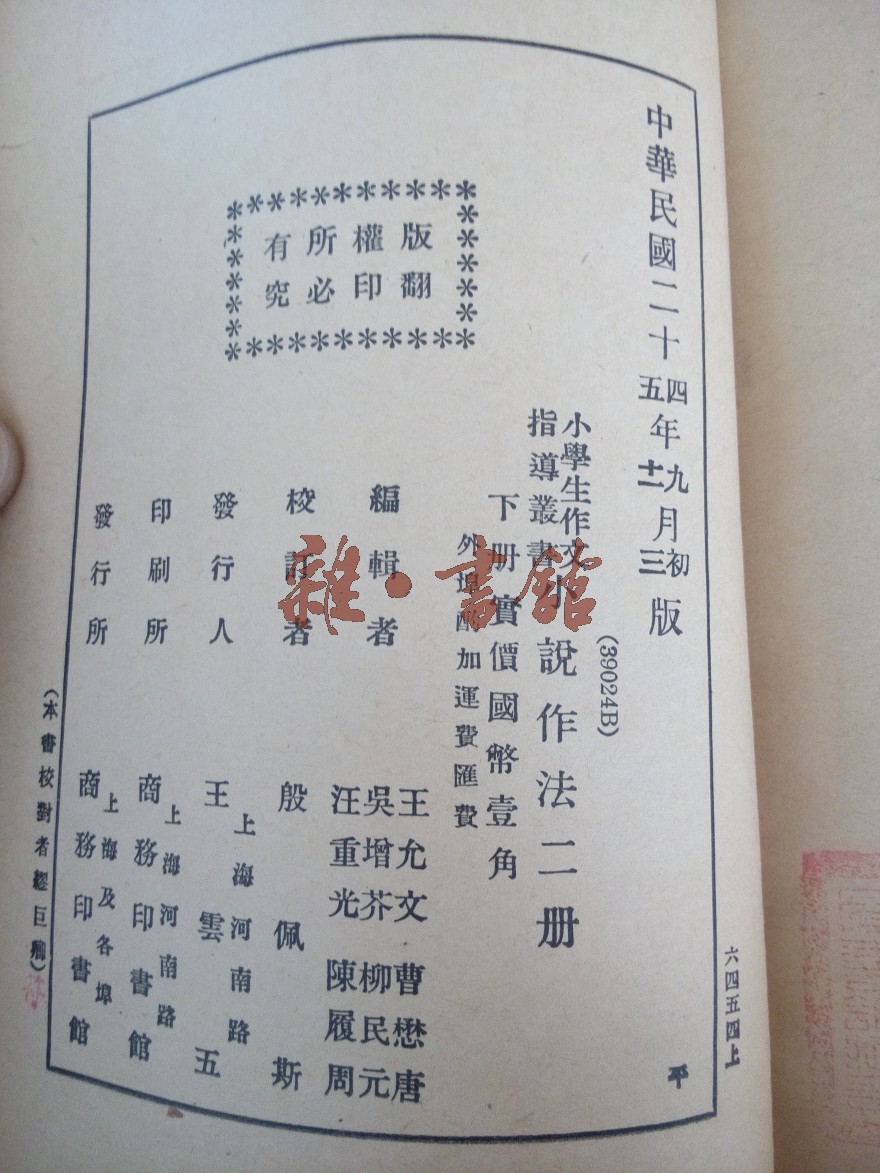 中華民國二十四年九月初版
五 十二 三
(39024B)
小學生作文
指導叢書
小說作法二册
下册實價國幣壹角
外埠酌加運費匯費
編輯者
王允文 曹懋唐
吳增芥 柳民元
汪重光 陳履周
校訂者 殷佩斯
發行人 王雲五
上海河南路
印刷所 商務印書館
上海河南路
發行所 商務印書館
上海及各埠
版權所有
翻印必究
(本書校對者 巨卿)
六四五四上
平
雜·書館